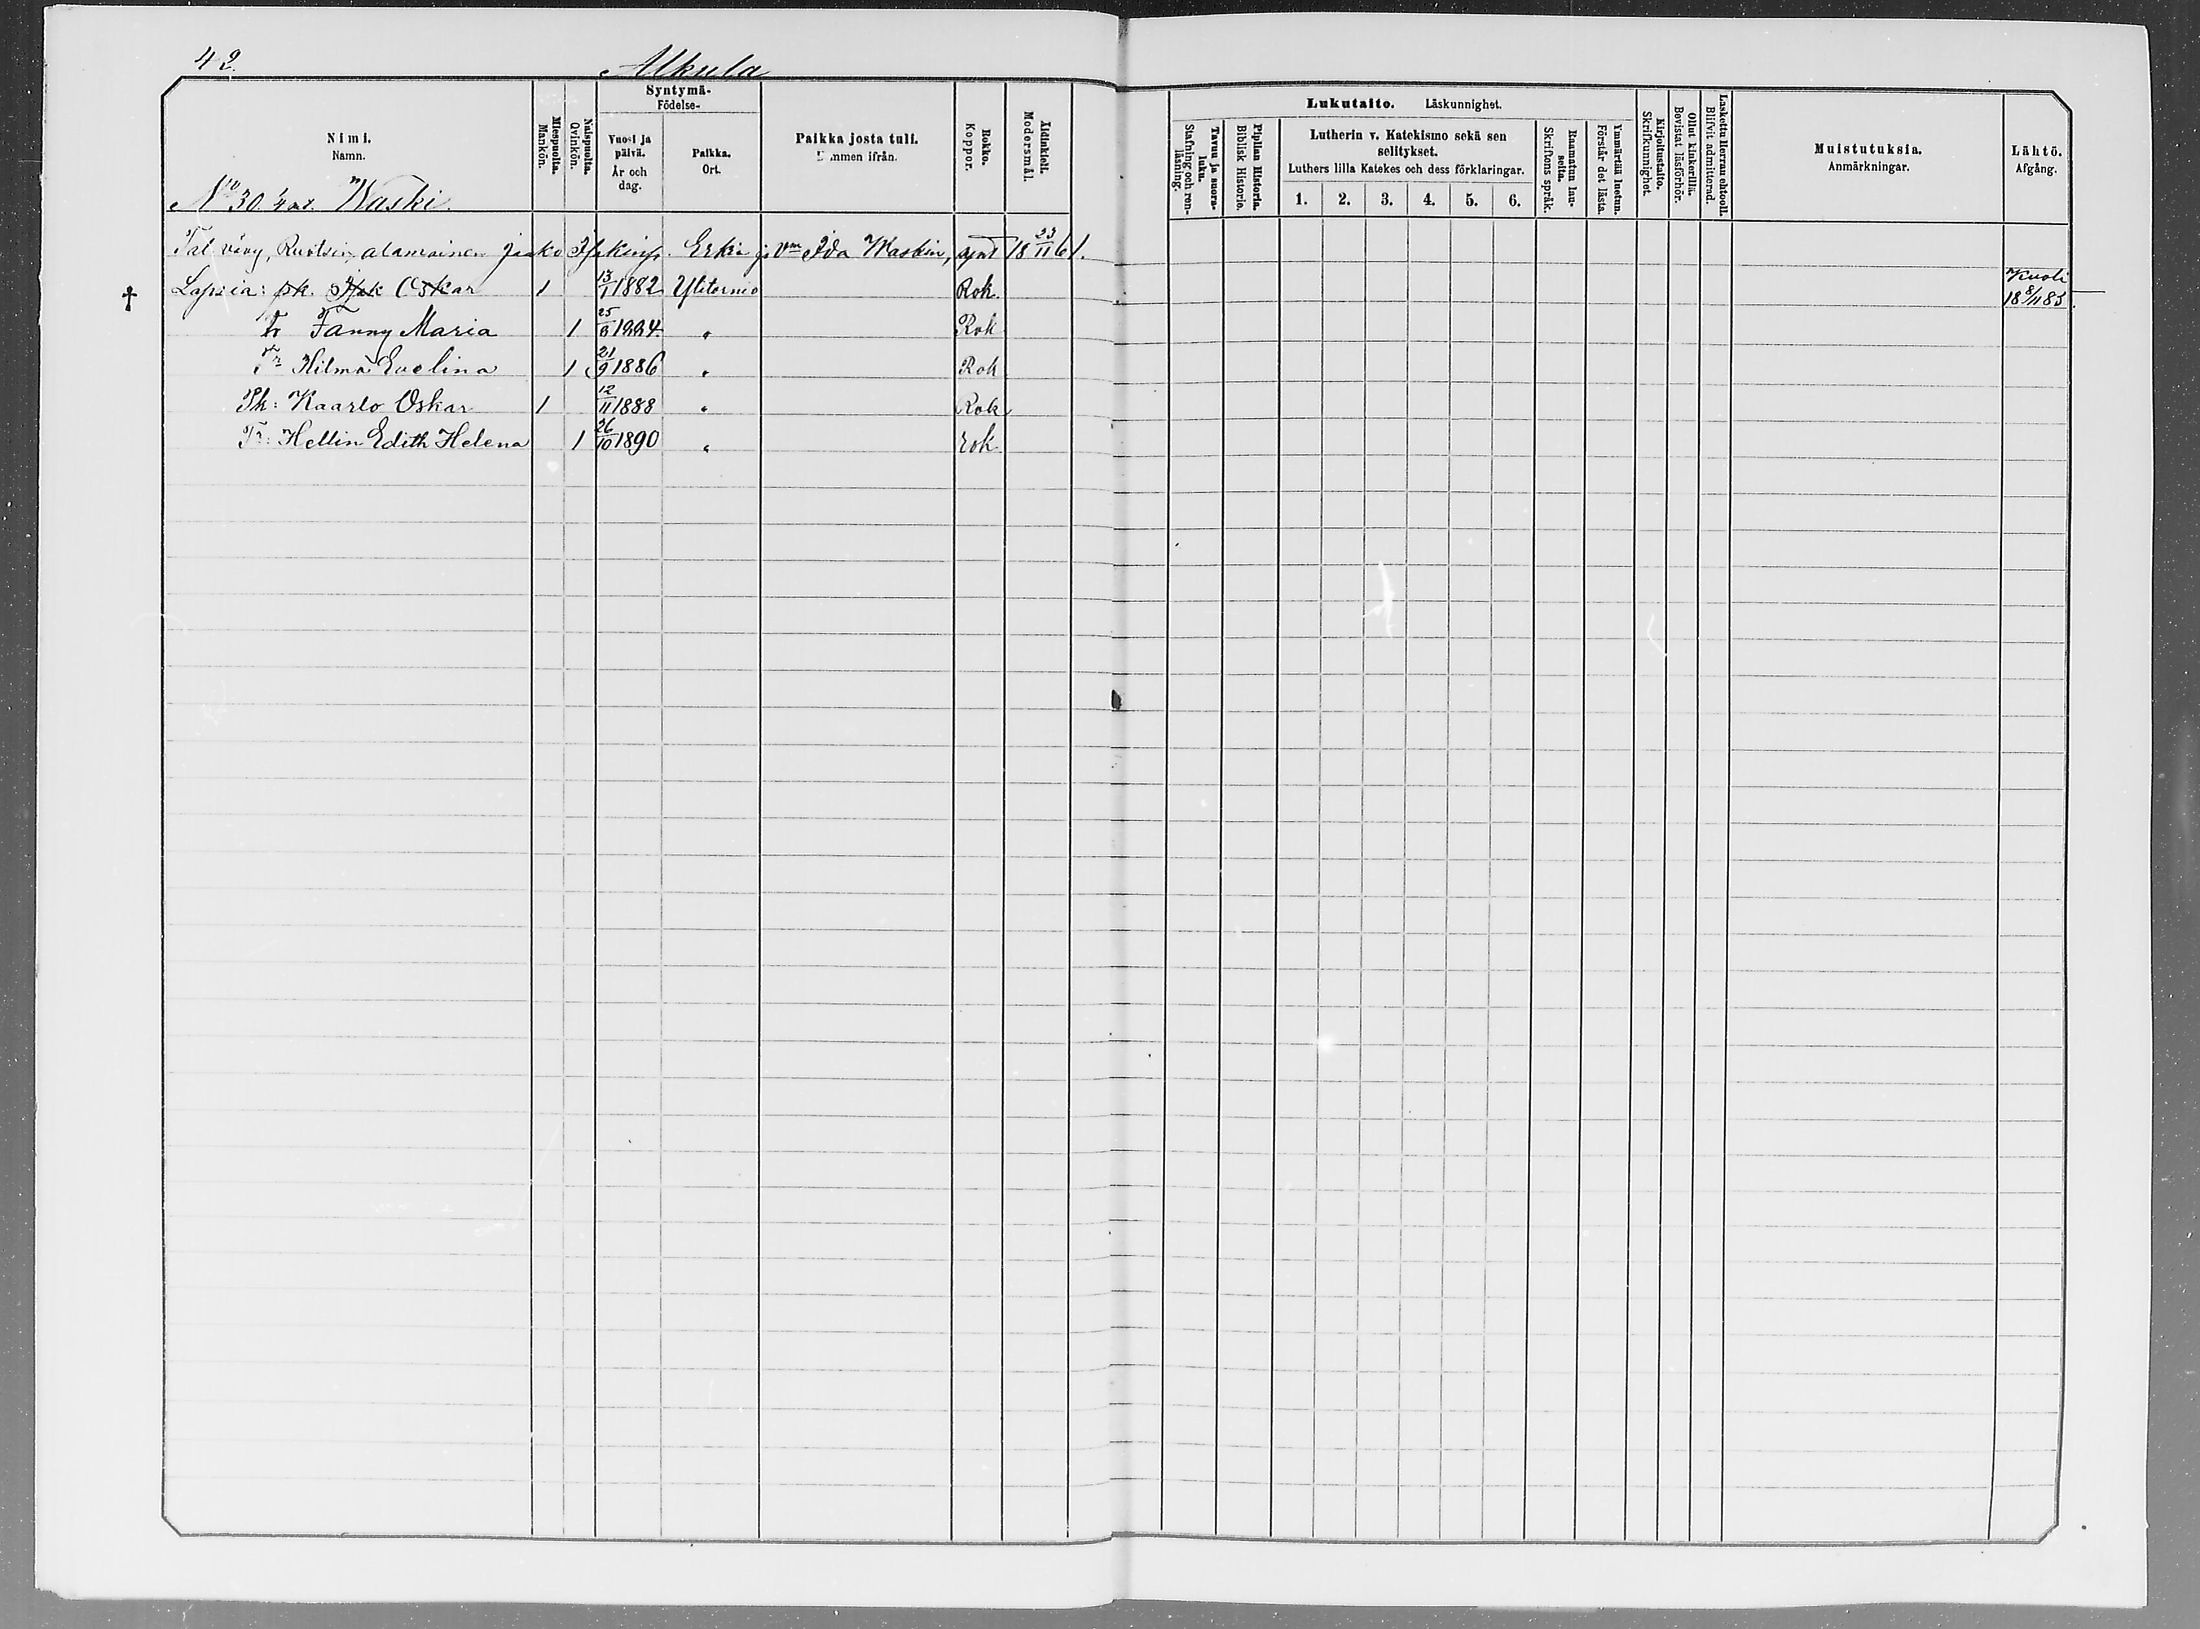 42.
Alkula
Nimi.
Namn.
Miespuolta.
Mankön.
Naispuolta.
Qvinkön.
Syntymä-
Födelse-
Vuosi ja
päivä.
År och
dag.
Paikka.
Ort.
Paikka josta tuli.
mmen ifrån.
Rokko.
Koppor.
Äidinkieli.
Modersmål.
Lukutaito. Läskunnighet.
Tavuu ja suora-
luku.
Stafning och ren-
läsning.
Piplian Historia.
Biblisk Historie.
Lutherin v. Katekismo sekä sen
selitykset.
Luthers lilla Katekes och dess förklaringar.
1. 2. 3. 4. 5. 6.
Raamatun lau-
seita.
Skriftens språk.
Ymmärtää luetun.
Förstår det lästa.
Kirjoitustaito.
Skrifkunnighet.
Ollut kinkerillä.
Bevistat läsförhör.
Laskettu Herran ehtooll.
Blifvit admitterad.
Muistutuksia.
Anmärkningar.
Lähtö.
Afgång.
No 30. Waski.
Tal vävy, Ruotsin alamainen Erkin ja vm Ida Waskin, synt 18 23/11 61.
Lapsia: pk. Isak Oskar 1 13/1 1882 Ylitornio Rok. Kuoli 18 8/11 83
Tr Fanny Maria 1 1884 " Rok
Tr Hilma Evelina 1 21/9 1886 " Rok
Pk: Kaarlo Oskar 1 12/11 1888 " Rok
Tr: Hellin Edith Helena 1 26/10 1890 " rok